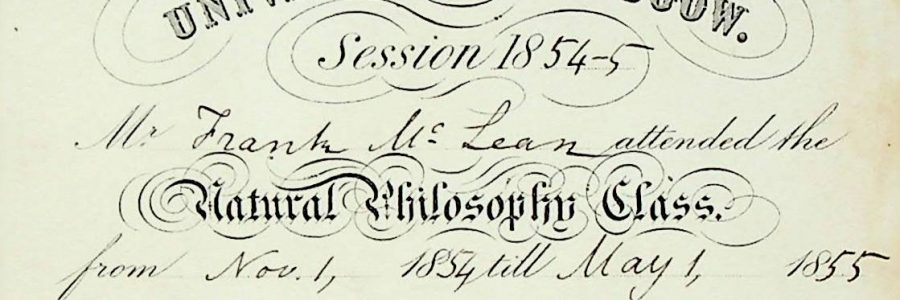 Session 1854-5
Mr Frank Mc Lean attended the
Natural Philosophy Class.
from Nov. 1, 1854, till May 1, 1855